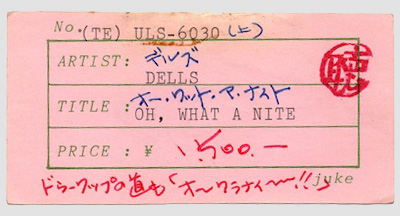 No. (TE) ULS-6030 (上)
デルズ
ARTIST: DELLS
オー・ワット・ア・ナイト
TITLE: OH, WHAT A NITE
PRICE: ¥ 1,500.—
ドゥーワップの道も「オ〜ワラナイ〜〜!!」
juke